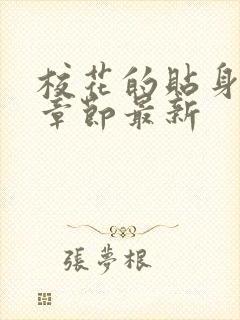 校花的貼身
章節最新
張夢根